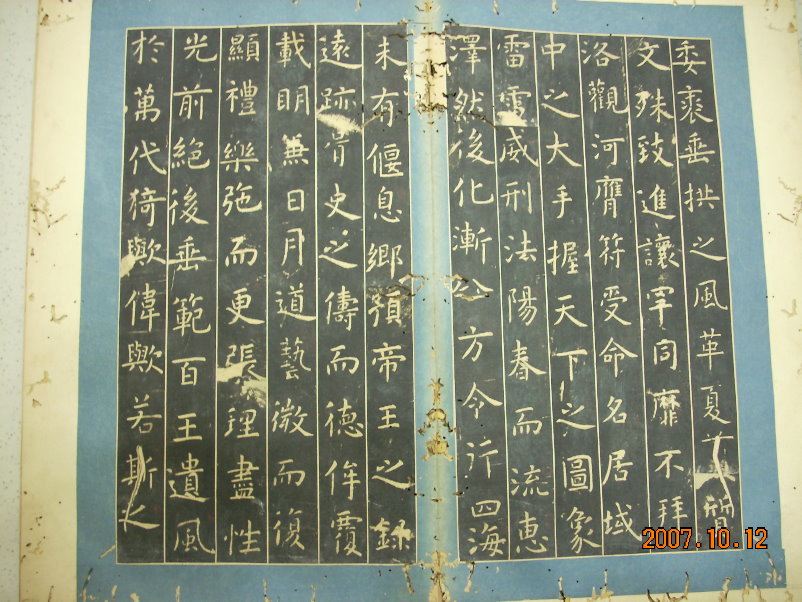 委裘垂拱之風革夏質
文殊致進讓罕同靡不拜
洛觀河膺符受命名居域
中之大手握天下之圖象
雷電威刑法陽春而流惠
澤然後化漸八方令行四海
未有偃息鄉預帝王之錄
遠跡胥史之儔而德侔覆
載明兼日月道藝微而復
顯禮樂弛而更張理盡性
光前絕後垂範百王遺風
於萬代猗歟偉歟若斯之
2007.10.12